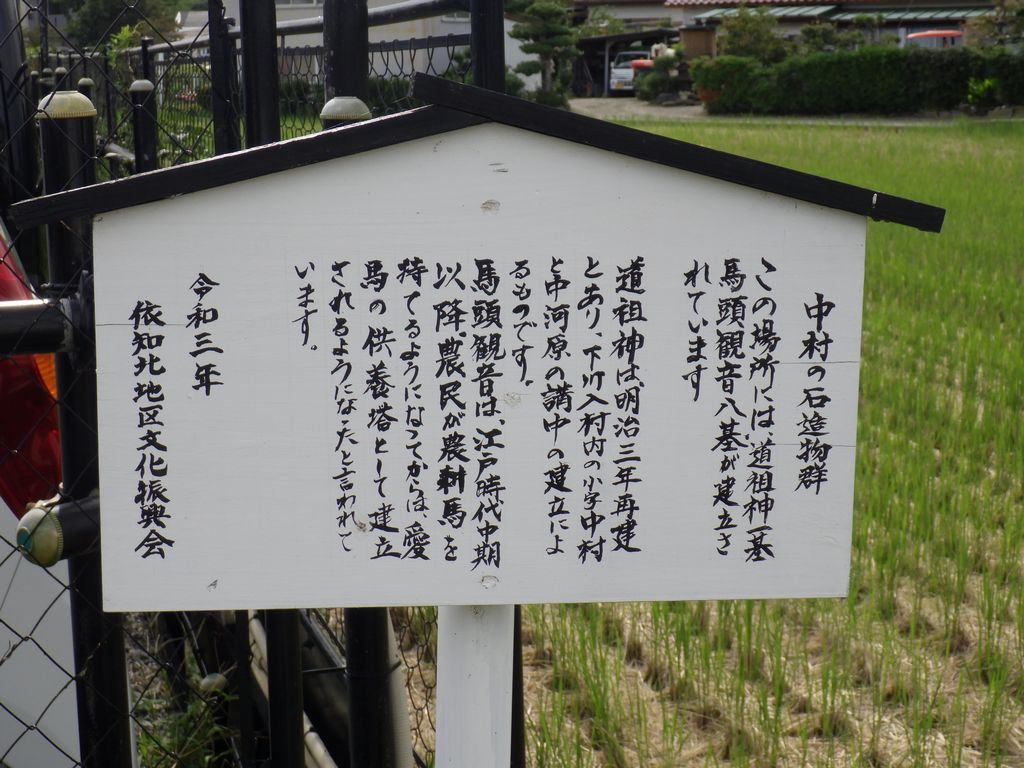 中村の石造物群
この場所には、道祖神一基
馬頭観音八基が建立さ
れています
道祖神は、明治三年再建
とあり、下川入村内の小字中村
と中河原の講中の建立によ
るものです。
馬頭観音は、江戸時代中期
以降、農民が農耕馬を
持てるようになってからは、愛
馬の供養塔として建立
されるようになったと言われて
います。
令和三年
依知北地区文化振興会